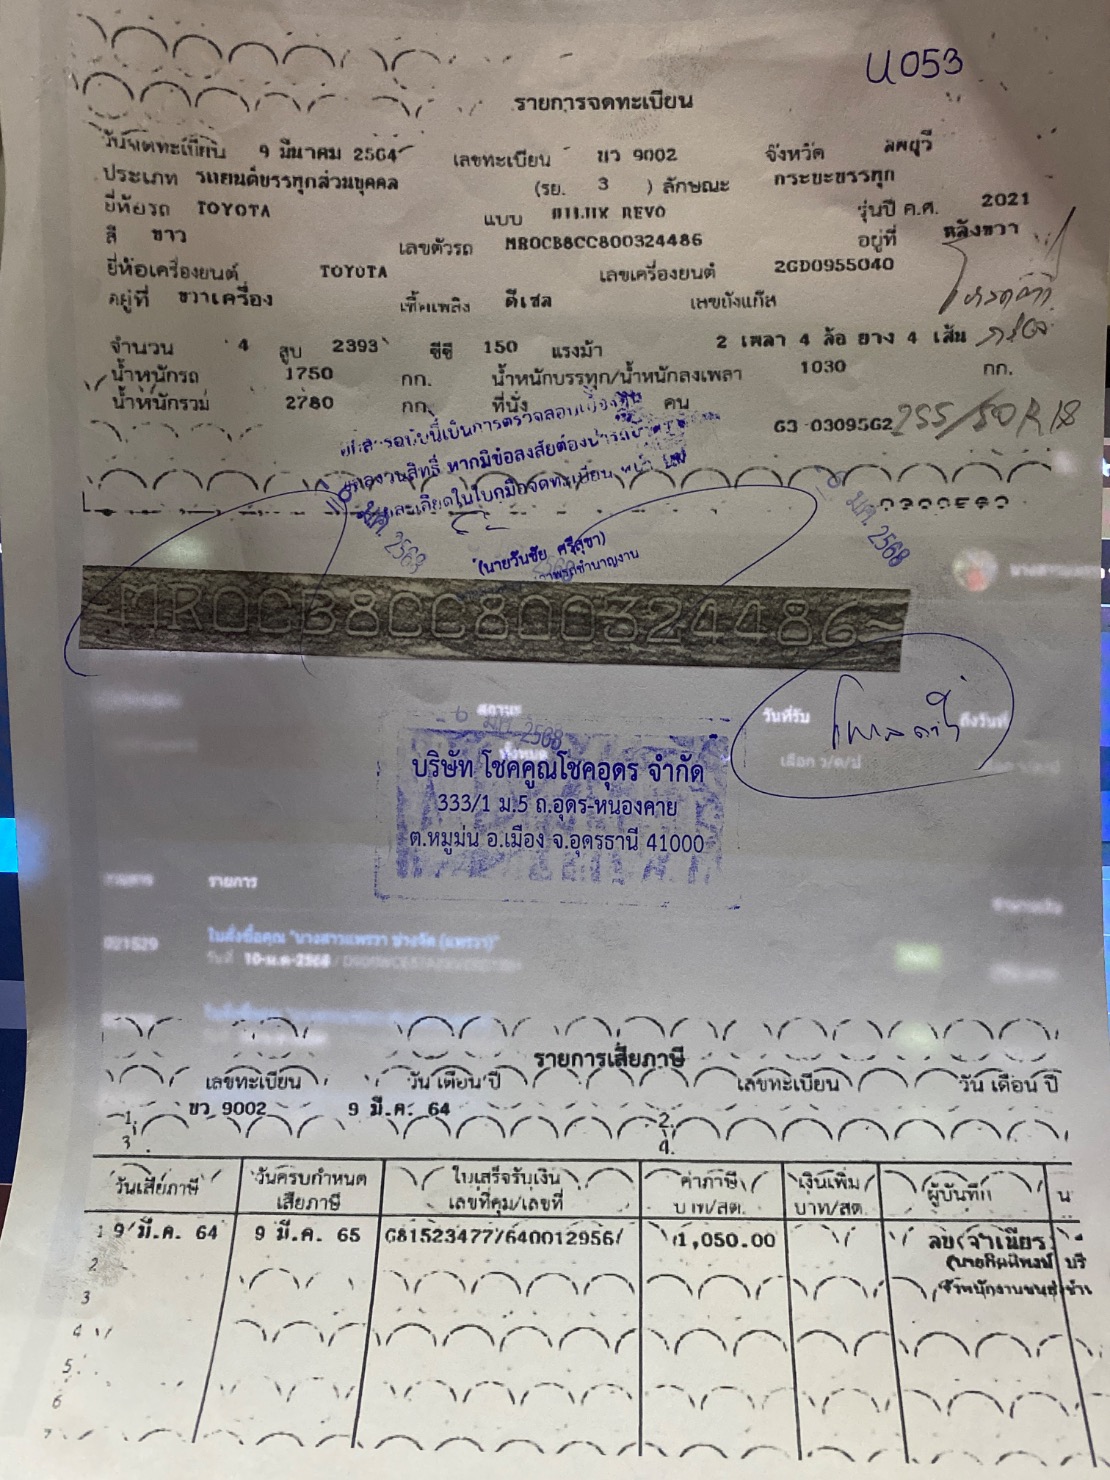 U053
รายการจดทะเบียน
วันจดทะเบียน 9 มีนาคม 2564 เลขทะเบียน ขว 9002 จังหวัด ลพบุรี
ประเภท รถยนต์บรรทุกส่วนบุคคล (รย. 3 ) ลักษณะ กระบะบรรทุก
ยี่ห้อรถ TOYOTA แบบ HILUX REVO รุ่นปี ค.ศ. 2021
สี ขาว เลขตัวรถ MR0CB8CC800324486 อยู่ที่ หลังขวา
ยี่ห้อเครื่องยนต์ TOYOTA เลขเครื่องยนต์ 2GD0955040
อยู่ที่ ขวาเครื่อง เชื้อเพลิง ดีเซล เลขถังแก๊ส
จำนวน 4 สูบ 2393 ซีซี 150 แรงม้า 2 เพลา 4 ล้อ ยาง 4 เส้น
น้ำหนักรถ 1750 กก. น้ำหนักบรรทุก/น้ำหนักลงเพลา 1030 กก.
น้ำหนักรวม 2780 กก. ที่นั่ง คน
63-0309562 255/50R18
เอกสารฉบับนี้เป็นการตรวจสอบเบื้องต้น
หากมีข้อสงสัยต้อง
รายละเอียดในใบคู่มือจดทะเบียน
(นายวันชัย ศรีสุขา)
มี.ค. 2568
มี.ค. 2568
~MR0CB8CC800324486~
สถานะ วันที่รับ ถึงวันที่
ทั้งหมด เลือก ว/ด/ป
บริษัท โชคคูณโชคอุดร จำกัด
333/1 ม.5 ถ.อุดร-หนองคาย
ต.หมูม่น อ.เมือง จ.อุดรธานี 41000
รายการ
021529 ใบสั่งซื้อคุณ "นางสาวแพรวา ช่างจัด (แพรวา)"
วันที่ 10-ม.ค-2568
รายการเสียภาษี
เลขทะเบียน วัน เดือน ปี เลขทะเบียน วัน เดือน ปี
1. ขว 9002 9 มี.ค. 64 2.
3. 4.
วันเสียภาษี วันครบกำหนดเสียภาษี ใบเสร็จรับเงิน เลขที่คุม/เลขที่ ค่าภาษี บาท/สต. เงินเพิ่ม บาท/สต. ผู้บันทึก น
1 9 มี.ค. 64 9 มี.ค. 65 G81523477/640012956/ 1,050.00
2
3
4
5
6
7